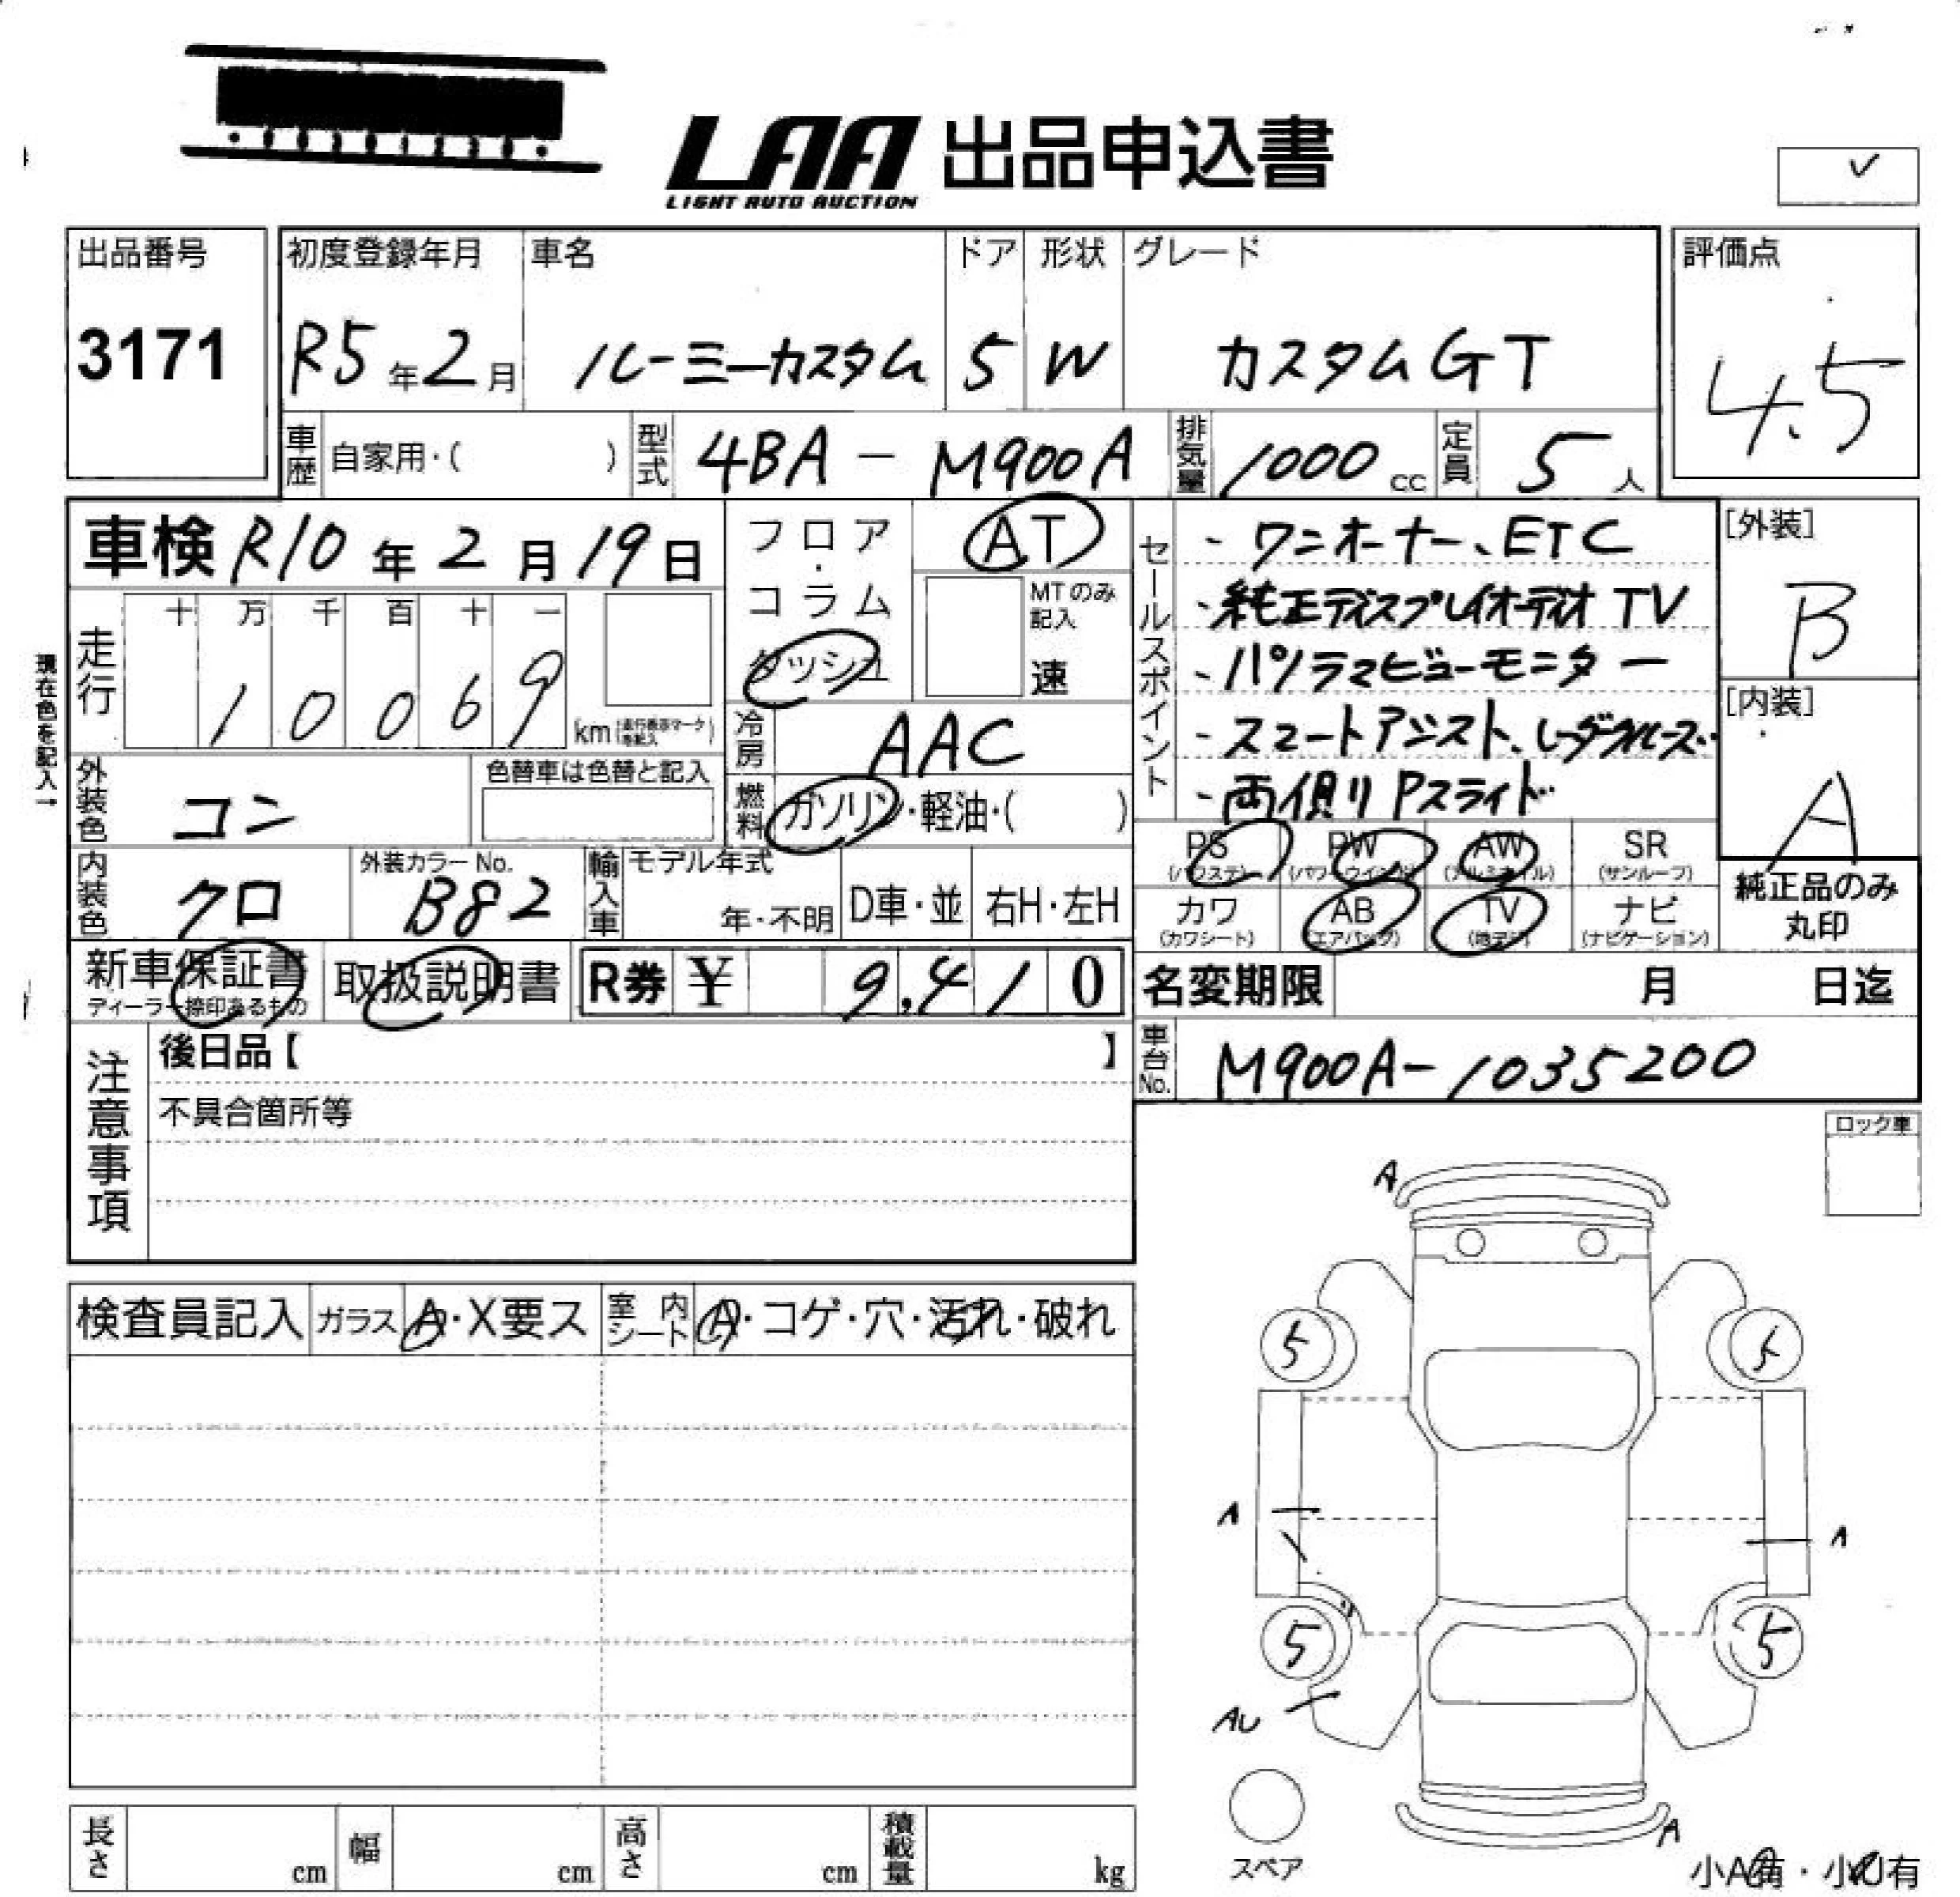 LAA 出品申込書
LIGHT AUTO AUCTION
出品番号
3171
初度登録年月 車名 ドア 形状 グレード
R5年2月 ルーミーカスタム 5 W カスタムGT
評価点
4.5
車歴 自家用・( ) 型式 4BA - M900A 排気量 1000 cc 定員 5 人
車検 R10年2月19日
フロア・コラム
ダッシュ
AT
MTのみ記入
速
走行
十 万 千 百 十 一
1 0 0 6 9
km
現在色を記入→
外装色 コン
色替車は色替と記入
冷房 AAC
燃料 ガソリン・軽油・( )
内装色 クロ
外装カラーNo.
B82
輸入車 モデル年式
年・不明 D車・並 右H・左H
セールスポイント
- ワンオーナー、ETC
- 純正ディスプレイオーディオ TV
- パノラマビューモニター
- スマートアシスト、レーダークルーズ
- 両側りPスライド
[外装]
B
[内装]
A
PS PW AW SR
(パワステ) (パワーウインド) (アルミホイル) (サンルーフ)
カワ AB TV ナビ
(カワシート) (エアバッグ) (地デジ) (ナビゲーション)
純正品のみ
丸印
新車保証書
ディーラー捺印あるもの
取扱説明書
R券 ¥ 9,410
名変期限 月 日迄
車台No. M900A-1035200
注意事項
後日品【 】
不具合箇所等
ロック車
検査員記入 ガラス A・X要ス 室内シート A・コゲ・穴・汚れ・破れ
A
5 5
A A
5 5
AU
A
スペア
小A有・小U有
長さ cm 幅 cm 高さ cm 積載量 kg